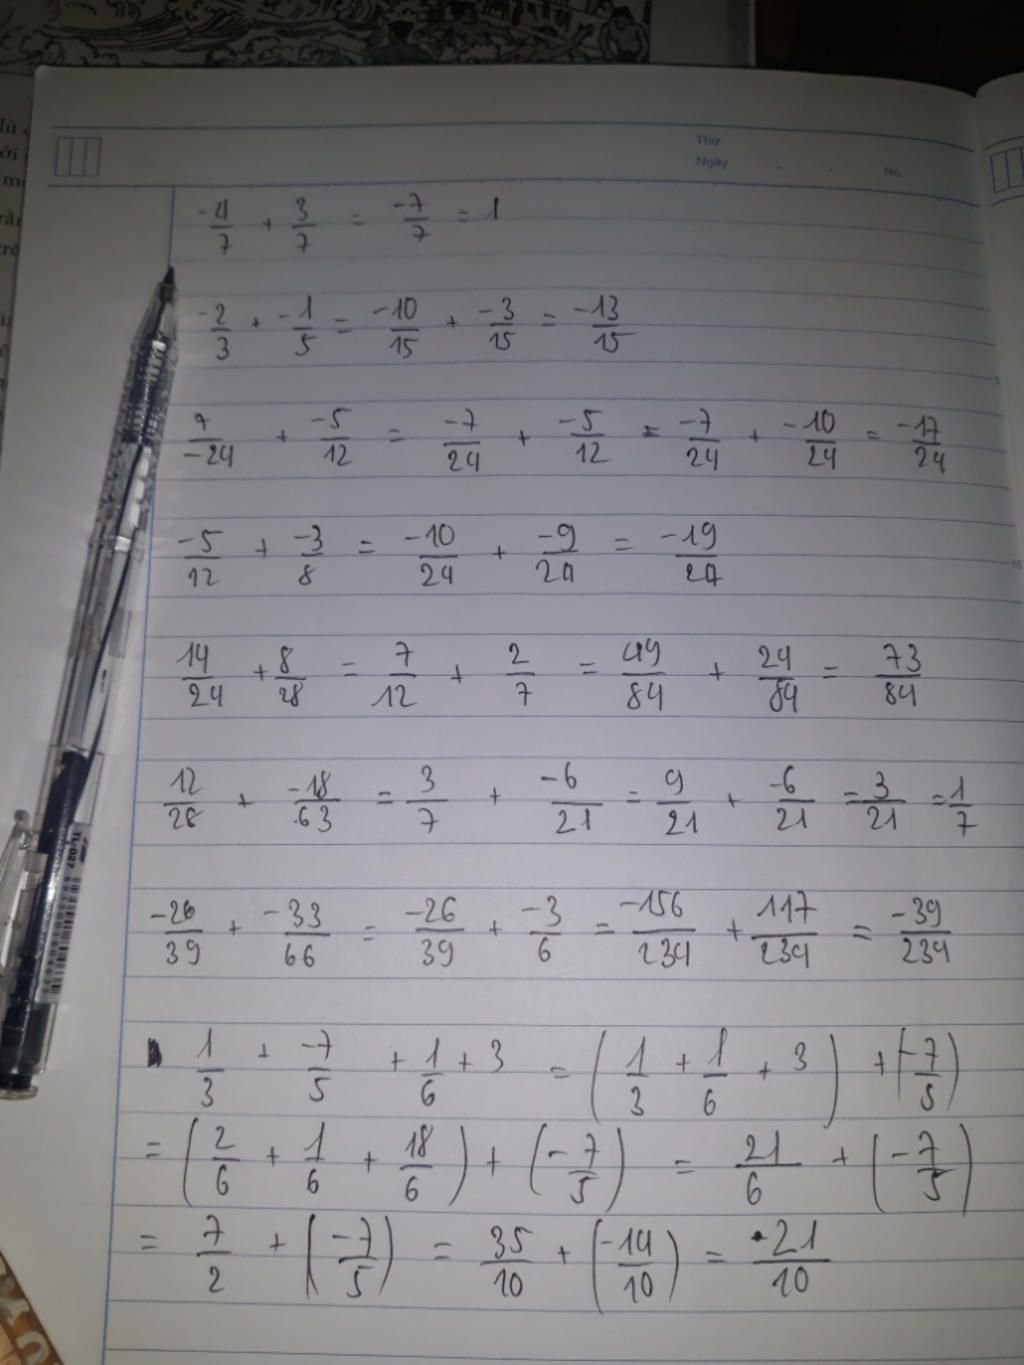 Thứ
Ngày
No.
-4/7 + 3/7 = -7/7 = 1
-2/3 + -1/5 = -10/15 + -3/15 = -13/15
7/-24 + -5/12 = -7/24 + -5/12 = -7/24 + -10/24 = -17/24
-5/12 + -3/8 = -10/24 + -9/24 = -19/24
14/24 + 8/28 = 7/12 + 2/7 = 49/84 + 24/84 = 73/84
12/28 + -18/63 = 3/7 + -6/21 = 9/21 + -6/21 = 3/21 = 1/7
-26/39 + -33/66 = -26/39 + -3/6 = -156/234 + 117/234 = -39/234
1/3 + -7/5 + 1/6 + 3 = (1/3 + 1/6 + 3) + (-7/5)
= (2/6 + 1/6 + 18/6) + (-7/5) = 21/6 + (-7/5)
= 7/2 + (-7/5) = 35/10 + (-14/10) = 21/10
5
10
TL-027